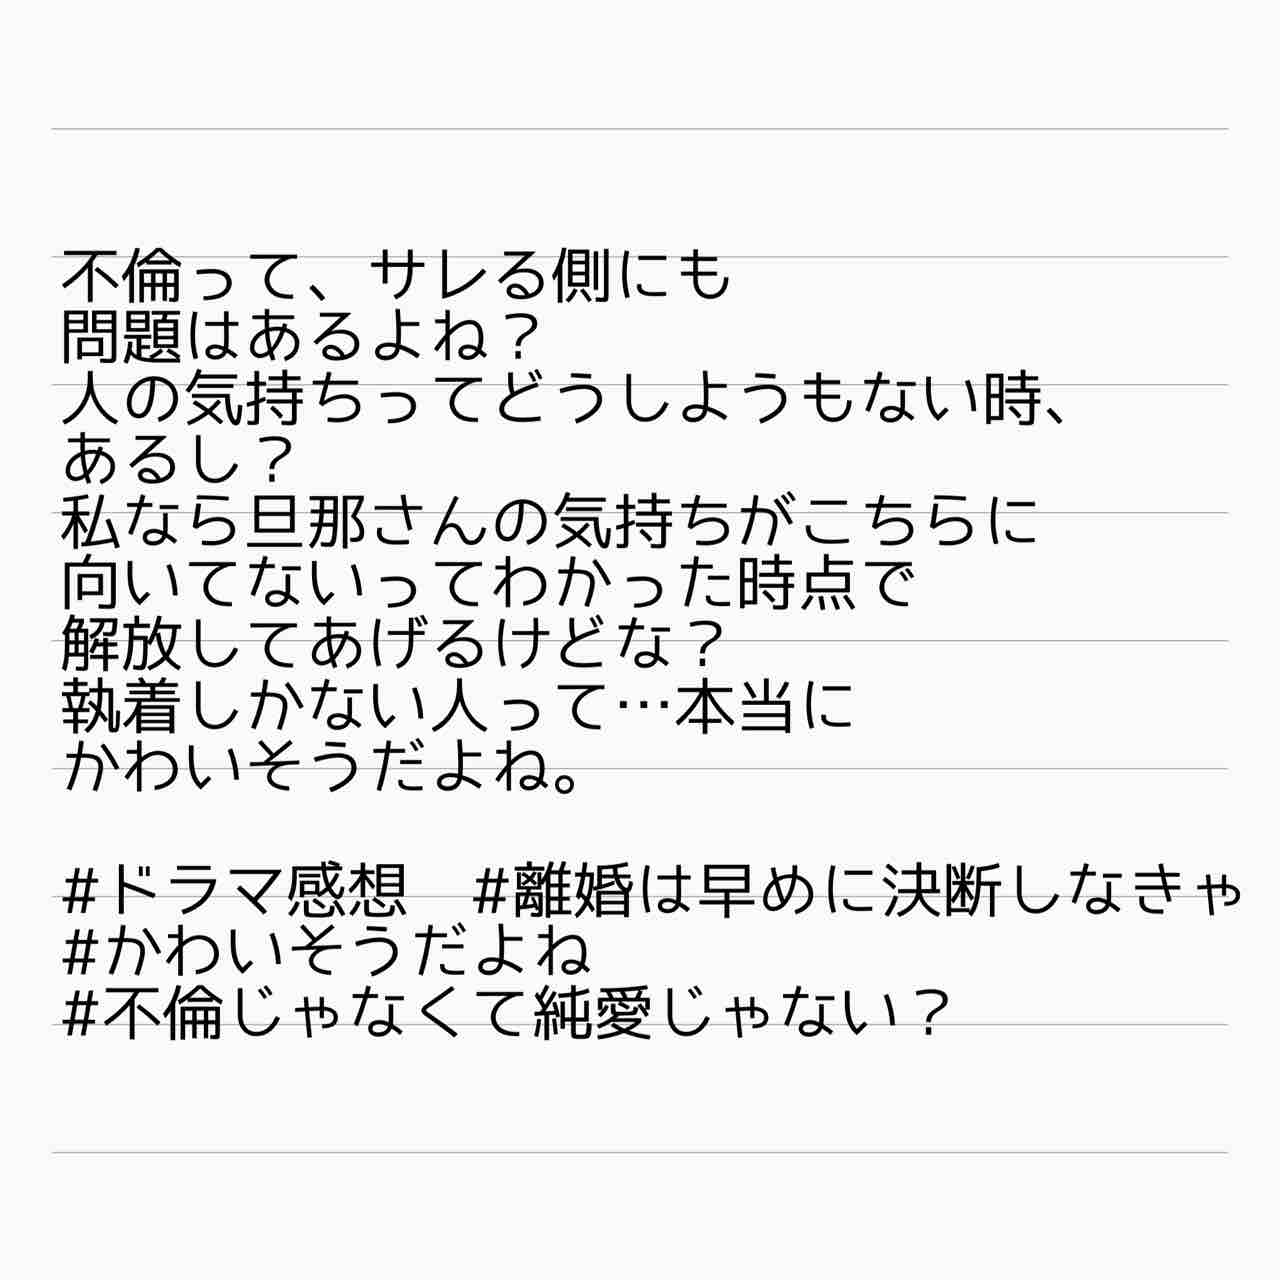 不倫って、サレる側にも
問題はあるよね？
人の気持ちってどうしようもない時、
あるし？
私なら旦那さんの気持ちがこちらに
向いてないってわかった時点で
解放してあげるけどな？
執着しかない人って…本当に
かわいそうだよね。
#ドラマ感想　#離婚は早めに決断しなきゃ
#かわいそうだよね
#不倫じゃなくて純愛じゃない？